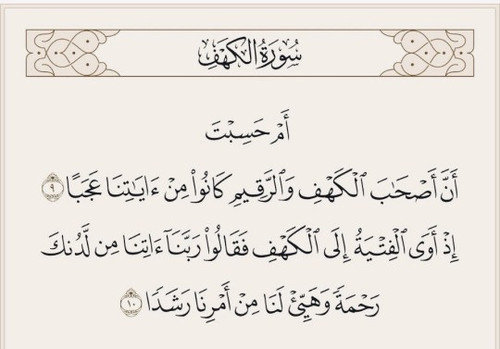 سُورَةُ الكَهۡفِ
أَمۡ حَسِبۡتَ
أَنَّ أَصۡحَٰبَ ٱلۡكَهۡفِ وَٱلرَّقِيمِ كَانُواْ مِنۡ ءَايَٰتِنَا عَجَبًا ٩
إِذۡ أَوَى ٱلۡفِتۡيَةُ إِلَى ٱلۡكَهۡفِ فَقَالُواْ رَبَّنَآ ءَاتِنَا مِن لَّدُنكَ
رَحۡمَةٗ وَهَيِّئۡ لَنَا مِنۡ أَمۡرِنَا رَشَدٗا ١٠